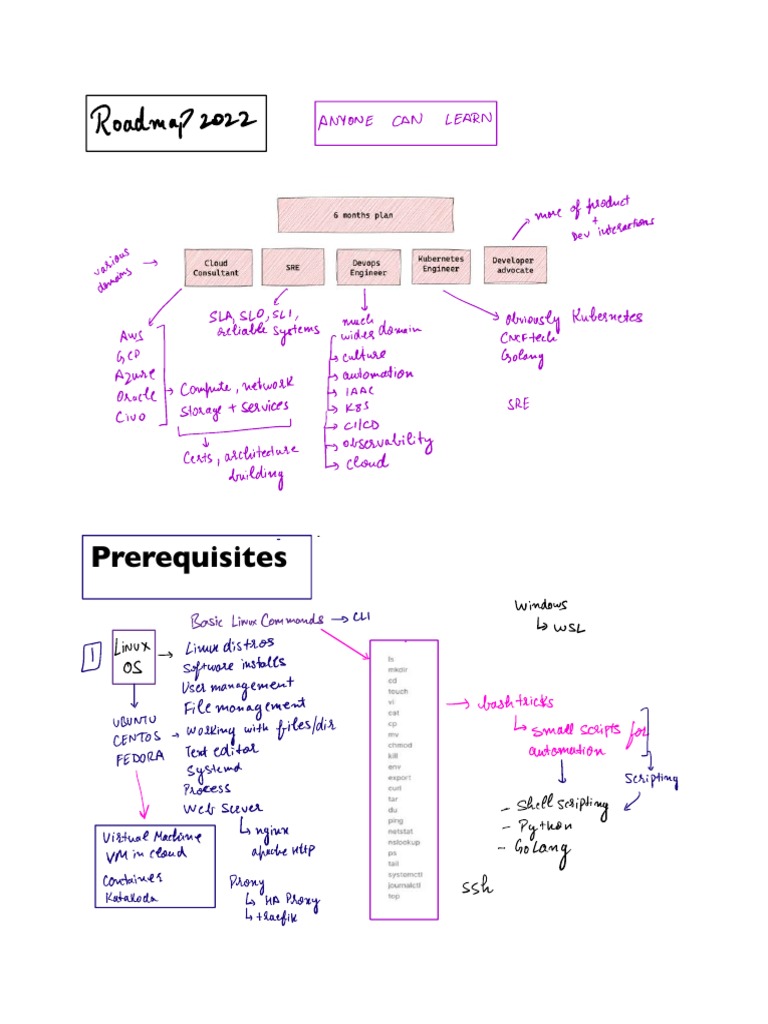 Roadmap 2022
ANYONE CAN LEARN
6 months plan
more of product
+
Dev interactions
various
domains
Cloud
Consultant
SRE
Devops
Engineer
Kubernetes
Engineer
Developer
advocate
AWS
GCP
Azure
Oracle
Civo
Compute, network
Storage + services
Certs, architecture
building
SLA, SLO, SLI,
reliable systems
much
wider domain
culture
automation
IAAC
K8S
CI/CD
observability
cloud
Obviously Kubernetes
CNCF tech
Golang
SRE
Prerequisites
1
Linux
OS
UBUNTU
CENTOS
FEDORA
Virtual Machine
VM in cloud
Container
Katakoda
Basic Linux Commands → CLI
Linux distros
Software installs
User management
File management
Working with files/dir
Text editor
Systemd
Process
Web Server
nginx
apache HTTP
Proxy
HA Proxy
traefik
ls
mkdir
cd
touch
vi
cat
cp
mv
chmod
kill
env
export
curl
tar
du
ping
netstat
nslookup
ps
tail
systemctl
journalctl
top
Windows
WSL
bash tricks
small scripts for
automation
Scripting
- Shell scripting
- Python
- GoLang
ssh